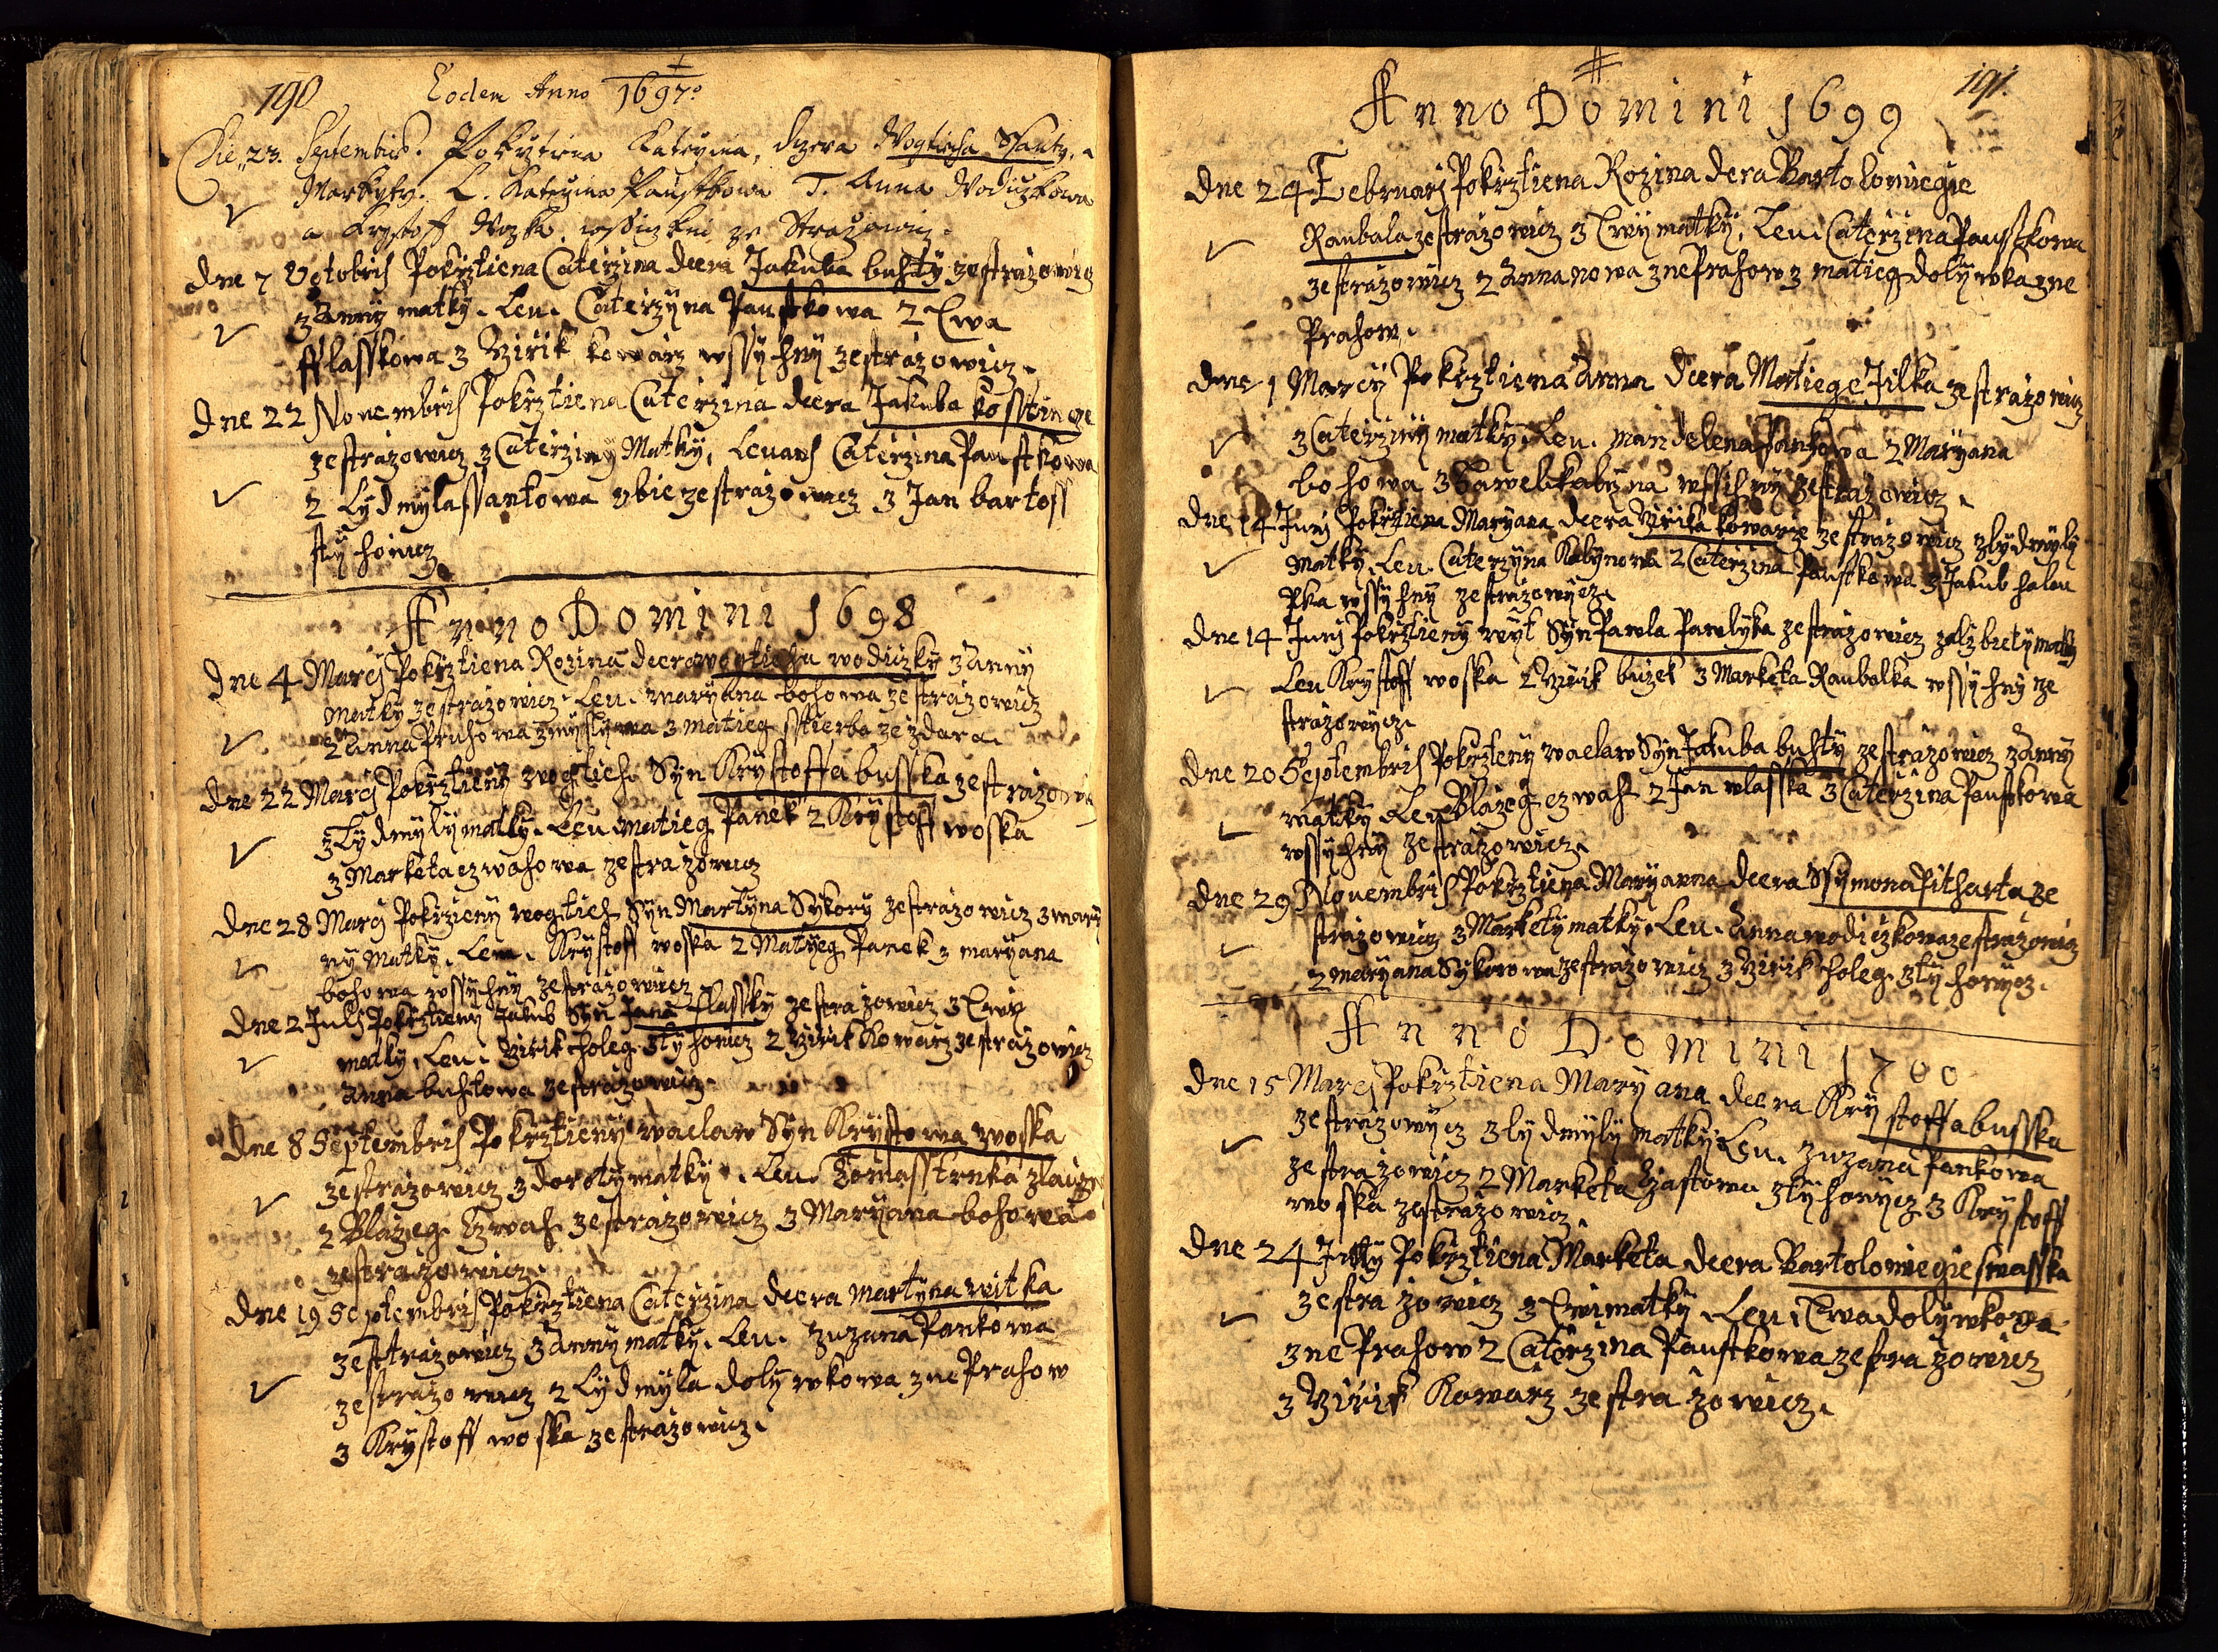 190 Eodem Anno 1697o
Die 23. Septembris. Pokrztiena Kateryina, dczera Wogtiecha Ssanty, a
Markyty. L. Kateyina Paustkowa T. Anna Wodiczkowa
a Krystoff Woska, wssiczkni ze Strazowicz.
dne 7 Octobris Pokrztiena Caterzina dcera Jakuba buhty zestrazowicz
z Anny matky. Leu. Caterzyna Paustkowa 2 Ewa
fflasskowa 3 Yirik kowarz wssyhny zestrazowicz.
dne 22 Novembris Pokrztiena Caterzina dcera Jakuba kosstinge
zestrazowicz z Caterziny Matky, Levans Caterzina Paustkowa
2 Lydmyla ssankowa obie zestrazowicz 3 Jan bartoss
styhowicz
Anno Domini 1698
dne 4 Marcj Pokrztiena Rozina dcera wogtieha wodiczky z Anny
matky zestrazowicz. Leu. maryana bohowa zestrazowicz
2 Anna Pruhowa zmyslywa 3 matieg sstierba ze zdara.
dne 22 Marcj Pokrztieny wogtieh Syn Krystoffa busska zestrazowicz
z Lydmyly matky. Leu. matieg Panek 2 Krystoff woska
3 Marketa czwahowa zestrazowicz
dne 28 Marcj Pokrzieny wogtieh Syn Martyna Sykory zestrazowicz z mary
ny Matky. Leu. Krystoff woska 2 Matyeg Panek 3 maryana
bohowa wssyhny zestrazowicz
dne 2 Julj Pokrztieny Jakub Syn Jana Flassky zestrazowicz z Ewy
matky, Leu. Yirik holeg z tyhowicz 2 Yirik Kowarz zestrazowicz
Anna buhtowa zestrazowicz.
dne 8 Septembris Pokrztieny waclaw Syn Krystowa woska
zestrazowicz z doroty matky. Leu. Tomass trnka
2 Blazeg Czwah zestrazowicz 3 Maryana bohowa
zestrazowicz.
dne 19 Septembris Pokrztiena Caterzina dcera martyna witka
zesttrazowicz z Anny matky. Leu. zuzana Pankowa
zestrazowicz 2 Lydmyla dolywkowa z neprahow
3 Krystoff woska zestrazowicz.
191.
Anno Domini 1699
dne 24 Februarj Pokrztiena Rozina dcera Bartolomiegie
Raubala zestrazowicz z Ewy matky, Leu. Caterzina Paustkowa
zestrazowicz 2 Annanowa z neprahow 3 matieg dolywka z ne
Prahow.
dne 1 Marcy Pokrztiena Anna dcera Matiege Jilka zestrazowicz
z Caterziny matky. Leu. mandelena Pankowa 2 Maryana
bohowa 3 Hawel kabyna wssihny zestrazowicz.
dne 14 Junj Pokrztiena Maryana dcera Yirika kowarze zestrazowicz z lydmyly
Matky Leu Caterzyna Kabynowa 2 Caterzina Paustkowa 3 Jakub halau
Pka wssyhny zestrazowycz.
dne 14 Junj Pokrztieny wyt Syn Pawla Pawlyka zestrazowicz z alzbiety matky
Leu Krystoff woska 2 Yirik buzek 3 Marketa Raubalka wssyhny ze
strazowycz.
dne 20 Septembris Pokrzteny waclaw Syn Jakuba buhty zestrazowicz z Anny
matky Leu Blazeg czwah 2 Jan wlasska 3 Caterzina Paustkowa
wssyhny zestrazowicz.
dne 29 Novembris Pokrztiena Maryanna dcera Ssymona Pitharta ze
strazowicz z Markety matky. Leu. Anna wodiczkowa zestrazowicz
2 maryana Sykorowa zestrazowicz 3 Yirik holeg z tyhowycz.
Anno Domini 1700
dne 15 Marcj Pokrztiena Maryana dcera Krystoffa busska
zestrazowycz z lydmyly matky Leu. zuzana Pankowa
zestrazowicz 2 Marketa z tyhowycz 3 Krystoff
woska zestrazowicz.
dne 24 July Pokrztiena Marketa dcera Bartolomiegie swasska
zestrazowicz z Ewi matky. Leu. Ewa dolywkowa
z ne Prahow 2 Caterzina Paustkowa zestrazowicz
3 Yirik Kowarz zestrazowicz.